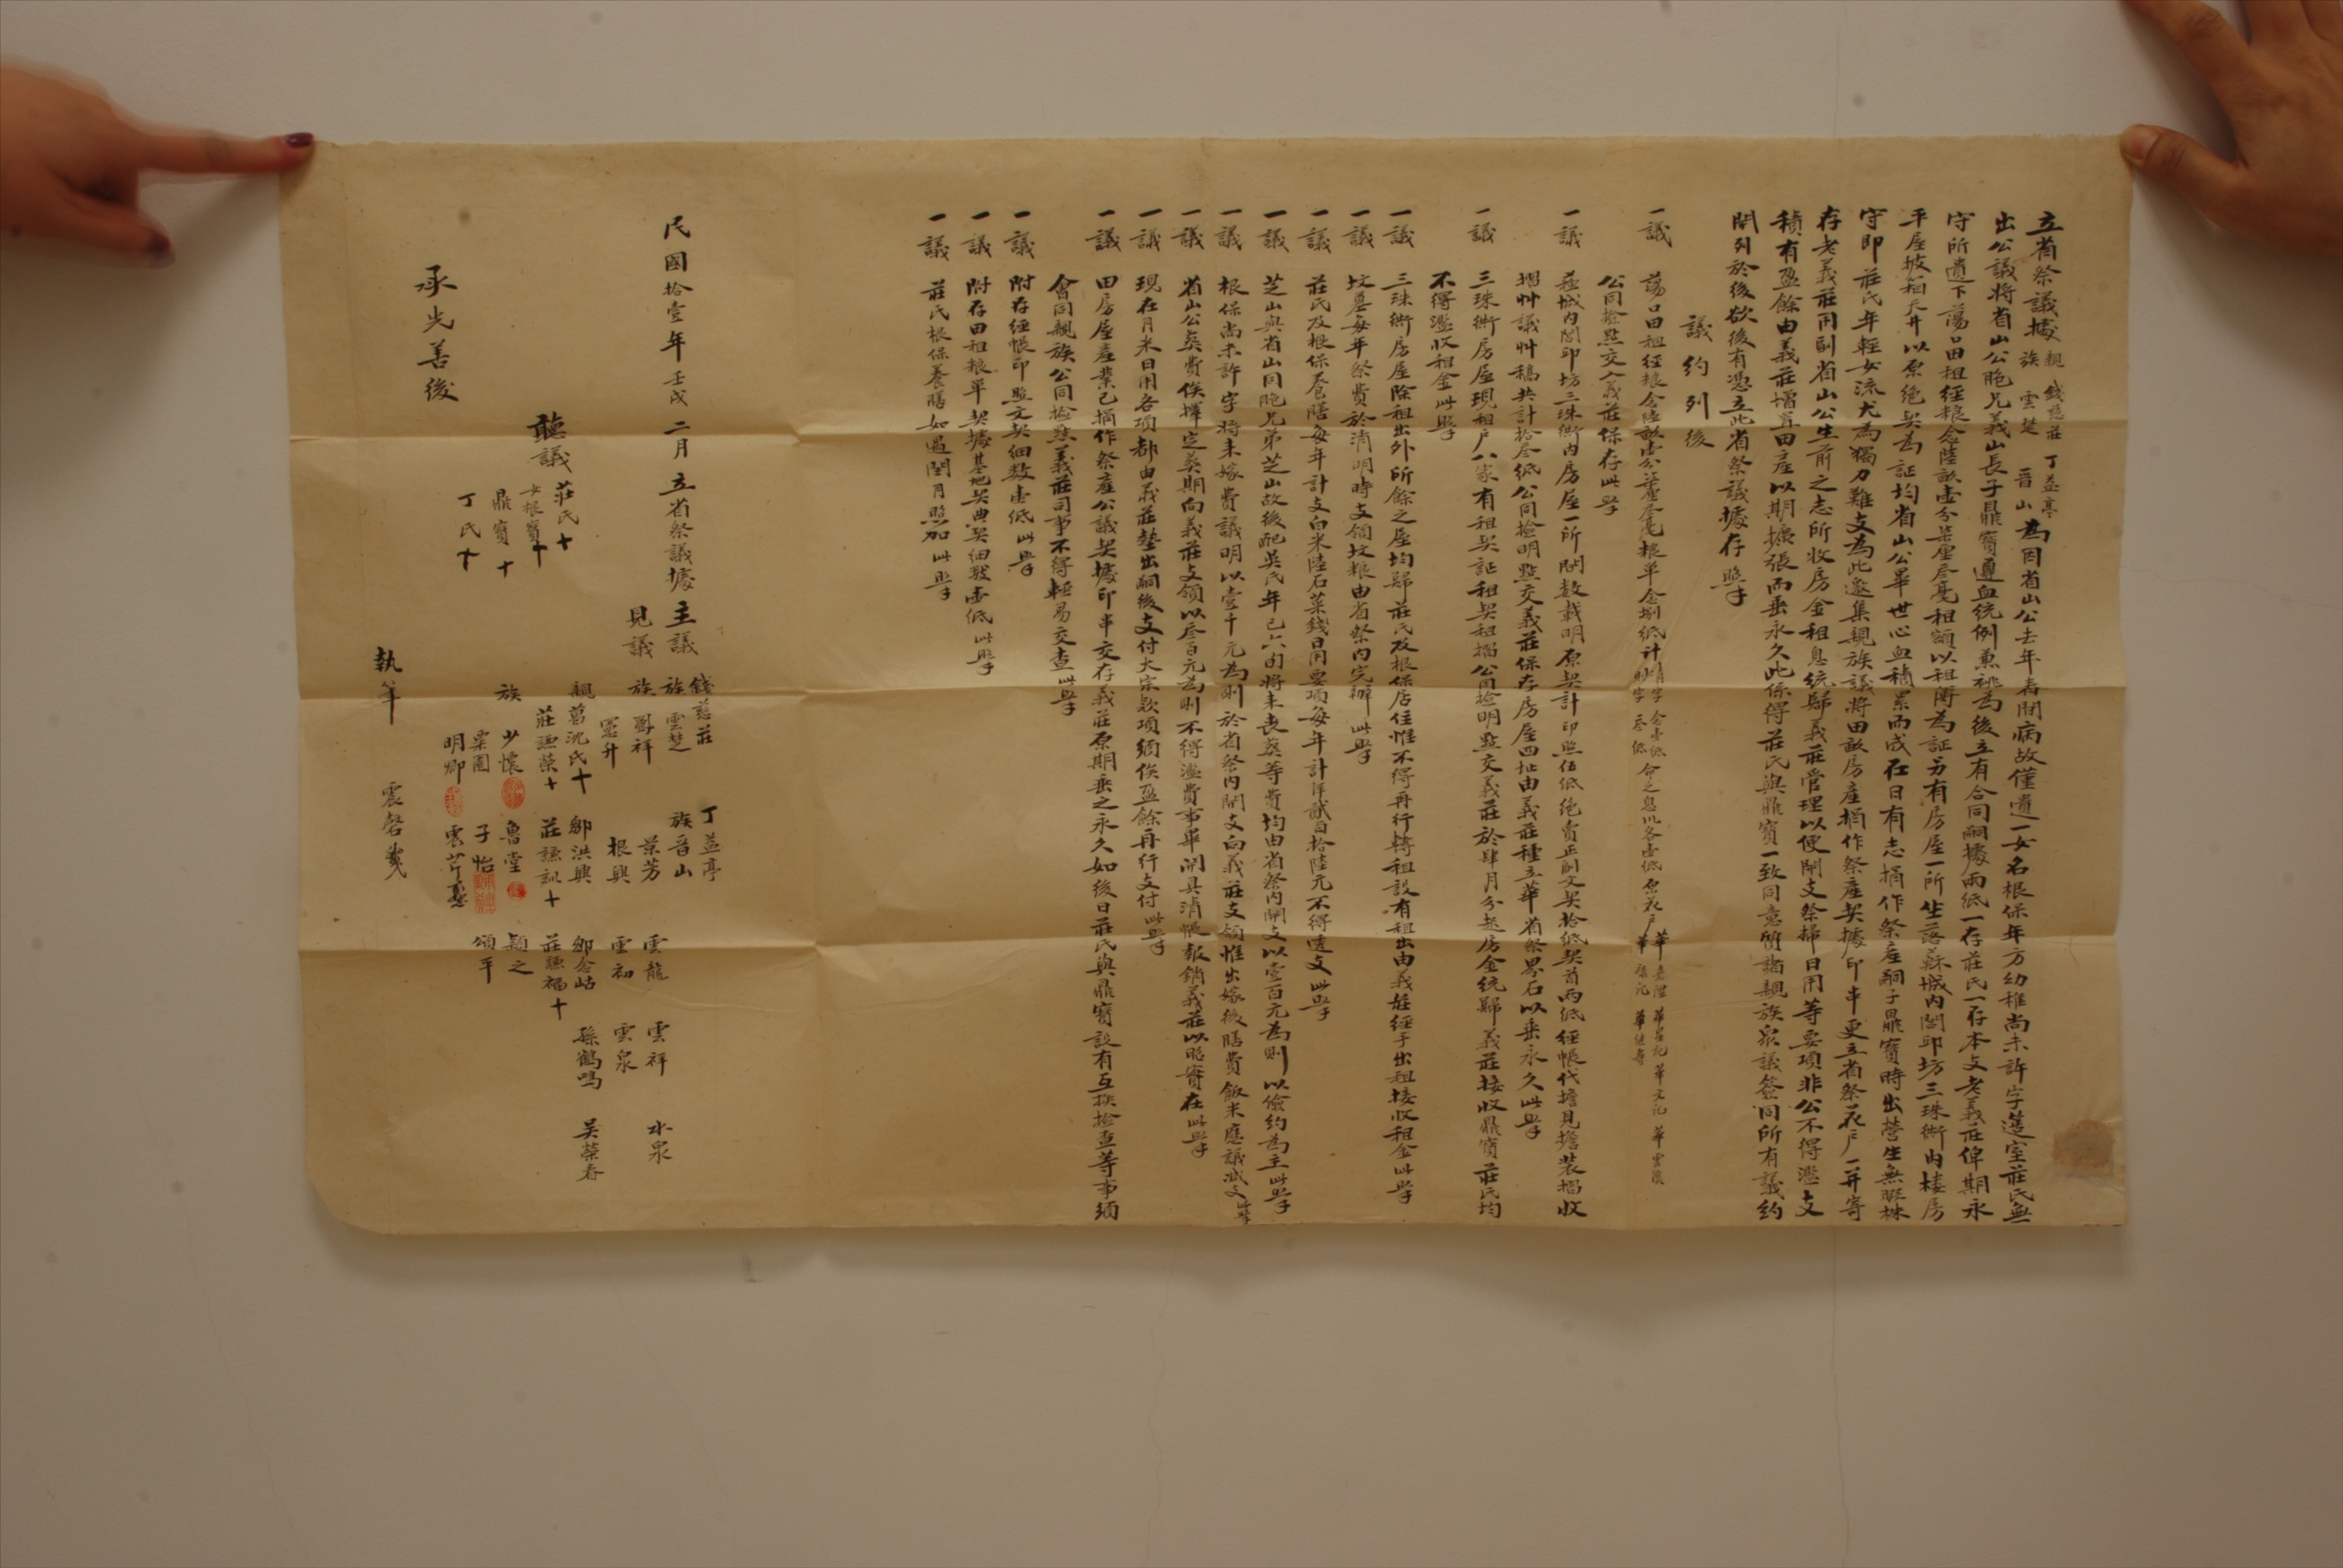 立省祭議據 親 錢慈莊 丁益亭 族 雲楚 晋山 為因省山公去年春間病故僅遺一女名根保年方幼稚尚未許字簉室莊氏無
出公議將省山公胞兄義山長子鼎寶遵血統例兼祧為後立有合同嗣據兩紙一存莊氏一存本支老義莊俾期永
守所遺下蕩口田租經粮念陸畝壹分柒厘叁毫租額以租簿為証另有房屋一所坐落蘇城内閶邱坊三珠衖内楼房
平屋披廂天井以原绝契為証均省山公畢世心血積累而成在日有志捐作祭產嗣子鼎寶時出營生無暇株
守即莊氏年輕女流尤為獨力難支為此邀集親族議將田畝房產捐作祭產契據印串更立省祭花户一并寄
存老義莊用副省山公生前之志所收房金租息統歸義莊管理以便開支祭掃日用等要項非公不得濫支
積有盈餘由義莊增置田產以期擴張而垂永久此係得莊氏與鼎寶一致同意簡諸親族衆議僉同所有議約
開列於後欲後有憑立此省祭議據存照
議約列後
一議 蕩口田租經粮念陸畝壹分柒厘叁毫粮單念捌紙計
公同撿點交入義莊保存此照
一議 蘇城内閶邱坊三珠衖内房屋一所間數載明原契計印照伍紙绝賣正副文契拾紙契首两紙經帳代擔見擔装摺收
摺艸議艸稿共計拾叁紙公同撿明點交義莊保存房屋四址由義莊種立華省祭界石以垂永久此照
一議 三珠衖房屋現租户八家有租契証租契租摺公同撿明點交義莊於肆月分起房金統歸義莊接收鼎寶莊氏均
不得濫收租金此照
一議 三珠衖房屋除租出外所餘之屋均歸莊氏及根保居住惟不得再行轉租設有租出由義莊經手出租接收租金此照
一議 坟墓每年祭費於清明時支領坟粮由省祭内完辦此照
一議 莊氏及根保養膳每年計支白米陸石菜錢日用要項每年計洋貳百拾陸元不得透支此照
一議 芝山與省山同胞兄弟芝山故後配吴氏年已六旬將来喪葬等費均由省祭内開支以壹百元為則以儉約為主此照
一議 根保尚未許字將来嫁費議明以壹千元為則於省祭内開支向義莊支領惟出嫁後膳費飯米應議减支此照
一議 省山公葬費俟擇定葬期向義莊支領以叁百元為則不得濫費事畢開具清帳報銷義莊以昭實在此照
一議 現在月米日用各項都由義莊墊出嗣後支付大宗款項須俟盈餘再行支付此照
一議 田房屋產業已捐作祭產公議契據印串交存義莊原期垂之永久如後日莊氏與鼎寶設有互換撿查等事須
會同親族公同撿點義莊司事不得輕易交查此照
一議 附存經帳印照文契細数壹紙此照
一議 附存田租粮單契據基地契典契細数壹紙此照
一議 莊氏根保養膳如遇閏月照加此照
民國拾壹年壬戌二月立省祭議據主議 錢慈莊 丁益亭
族 雲楚 族晋山
見議 族 景芳 雲龍 雲祥 水泉
憲升 根興 雲初 雲泉
親 葛沈氏十 鄒洪興 鄒念岵 孫鶴鳴 吴榮春
莊謙榮十 莊謙訓十 莊謙福十
族 少懷 魯堂 穎之
栗園 子怡 頌平
明卿 雲芹
聽議 莊氏十
女根寶十
鼎寶十
丁氏十
承先善後
執筆 震磬